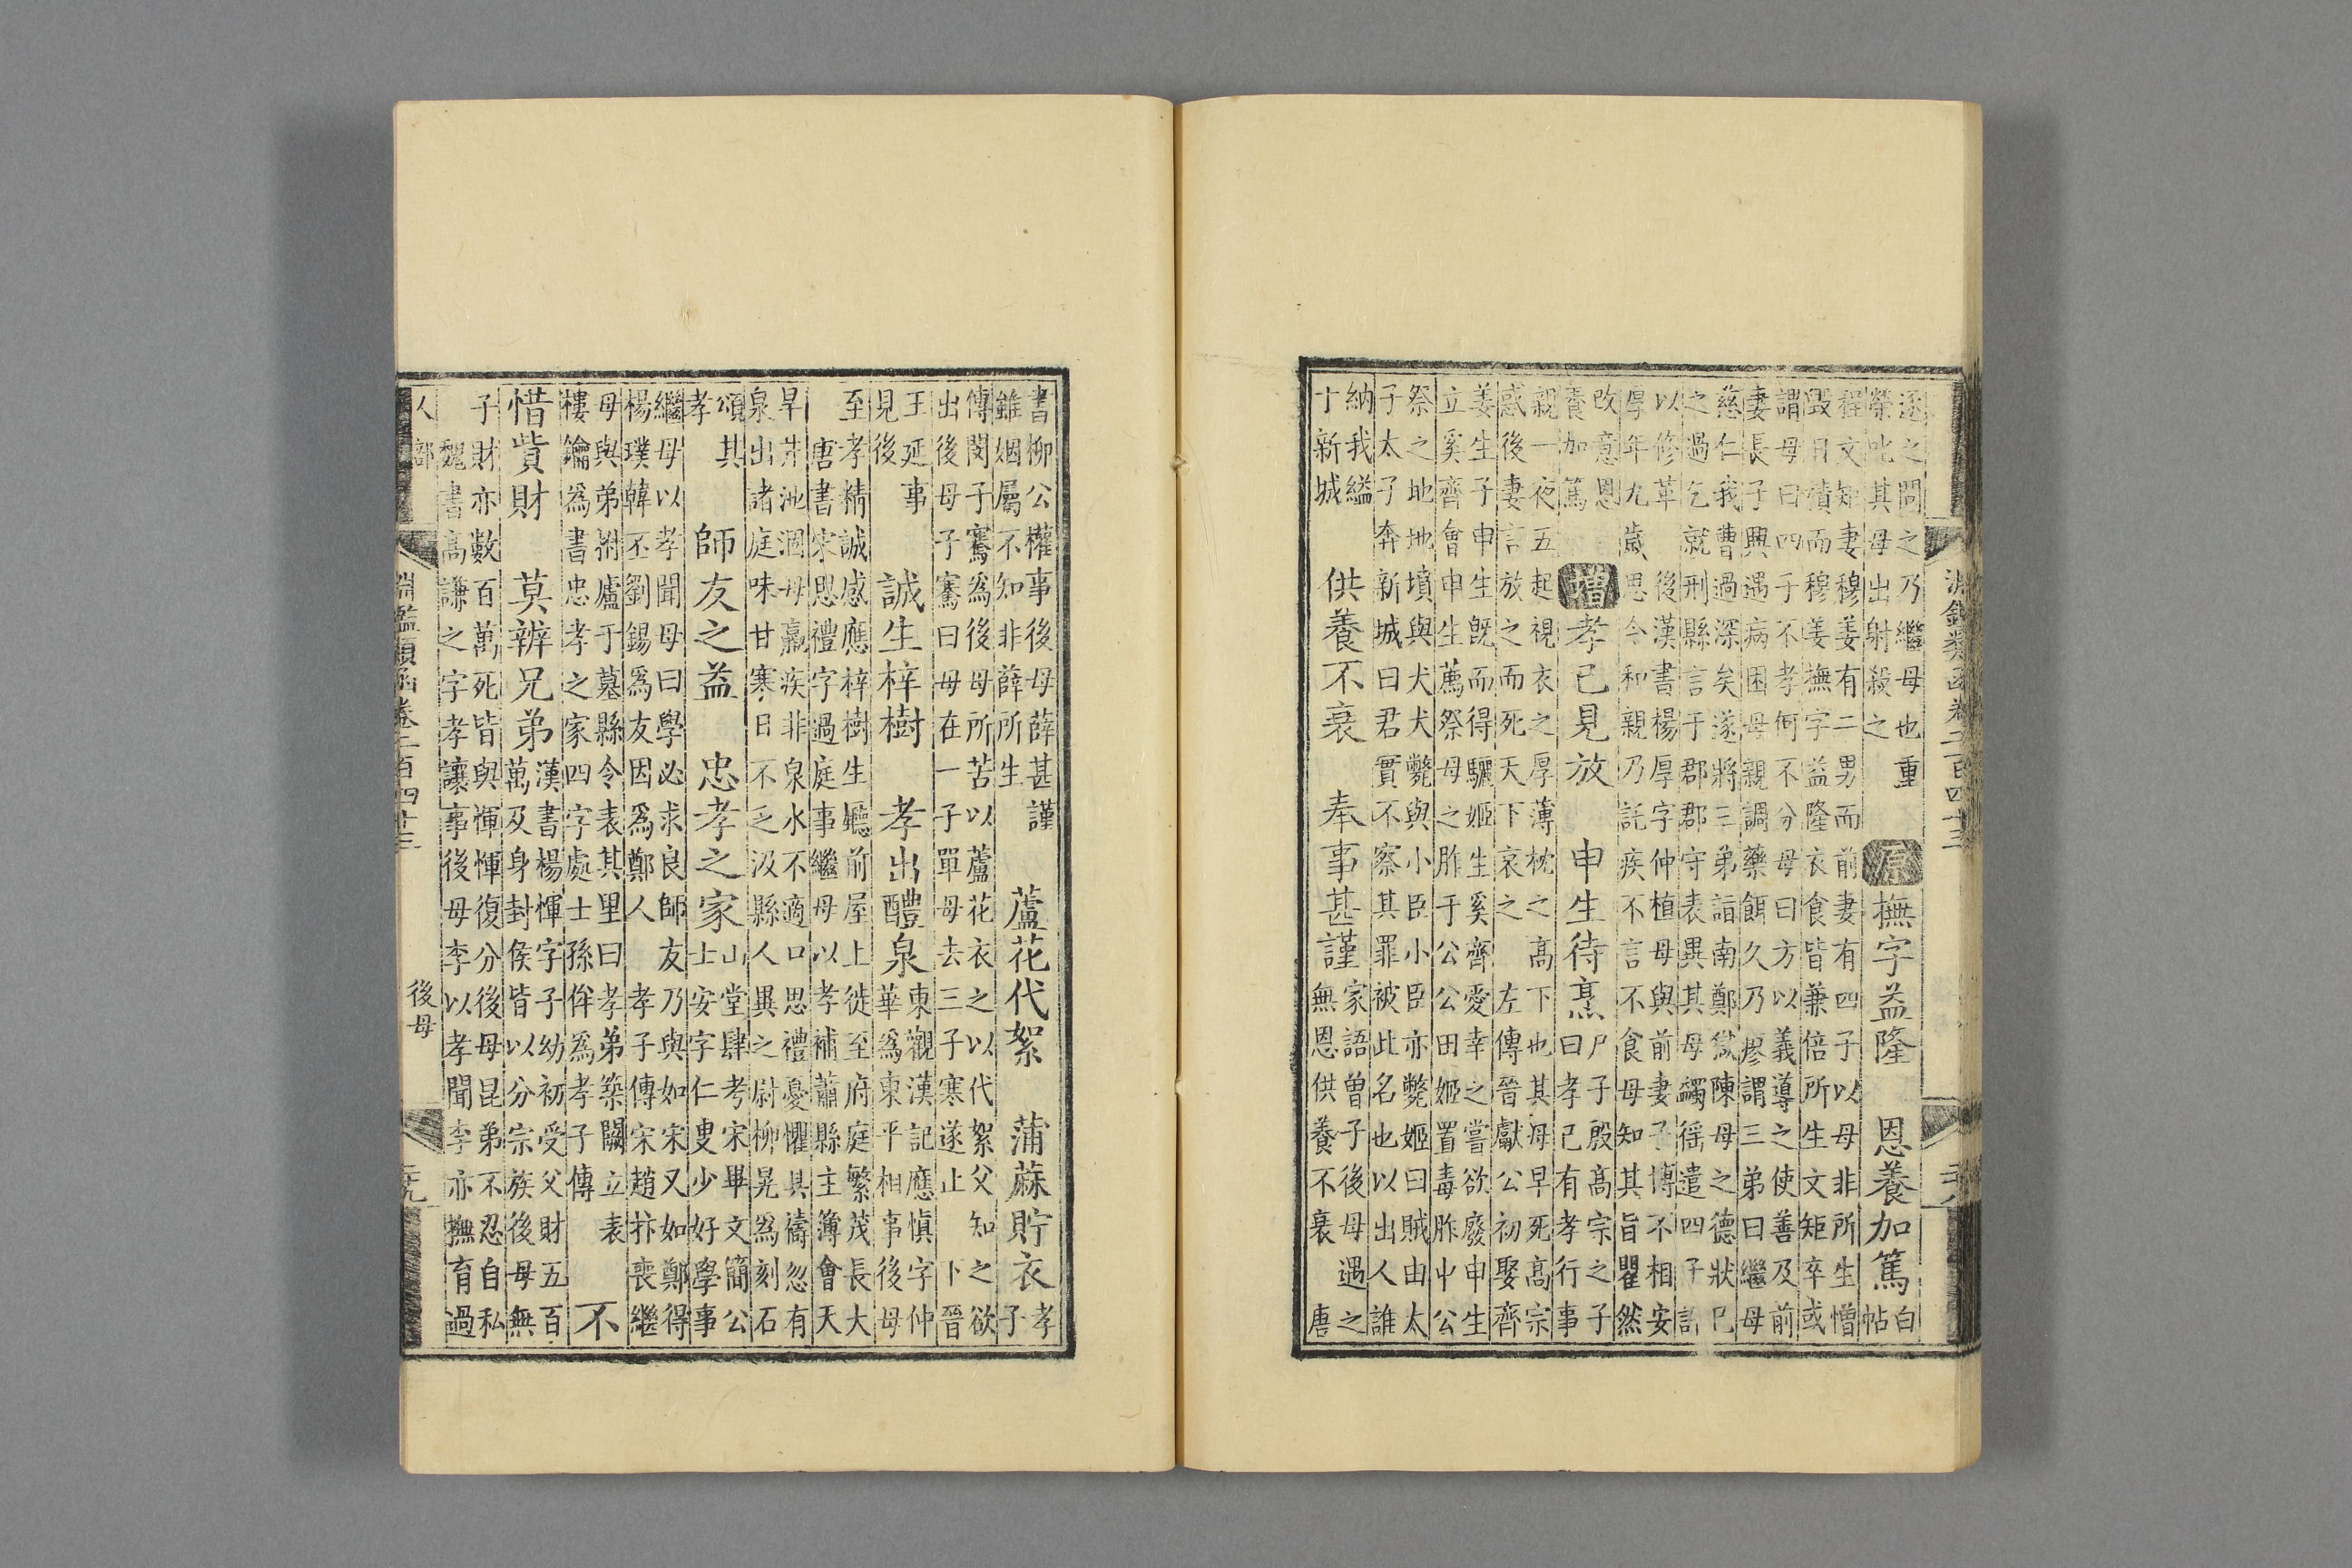 淵鑑類函卷二百四十三
二十八
逐之問之乃繼母也重
榮叱其母出射殺之
原撫字益隆　恩養加篤
白
帖
程文矩妻穆姜有二男而前妻有四子以母非所生憎
毀日積而穆姜撫字益隆衣食皆兼倍所生文矩卒或
謂母曰四子不孝何不分母曰方以義導之使善及前
妻長子興遇病困母親調藥餌久乃瘳謂三弟曰繼母
慈仁我曹過深矣遂將三弟詣南鄭獄陳母之德狀已
之過乞就刑縣言于郡郡守表異其母蠲徭遣四子許
以修革　後漢書楊厚字仲植母與前妻子博不相安
厚年九歲思令和親乃託疾不言不食母知其旨瞿然
改意恩
養加篤
增孝已見放　申生待烹
尸子殷高宗之子
曰孝已有孝行事
親一夜五起視衣之厚薄枕之高下也其母早死高宗
惑後妻言放之而死天下哀之　左傳晉獻公初娶齊
姜生子申生旣而得驪姬生奚齊愛幸之嘗欲廢申生
立奚齊會申生薦祭母之胙于公公田姬置毒胙中公
祭之地地墳與犬犬斃與小臣小臣亦斃姬曰賊由太
子太子奔新城曰君實不察其罪被此名也以出人誰
納我縊
十新城
供養不衰　奉事甚謹
家語曾子後母遇之
無恩供養不衰　唐
書柳公權事後母薛甚謹
雖姻屬不知非薛所生
蘆花代絮　蒲蔴貯衣
孝
子
傳閔子騫爲後母所苦以蘆花衣之以代絮父知之欲
出後母子騫曰母在一子單母去三子寒遂止　卞晉
王延事
見後
誠生梓樹　孝出醴泉
東觀漢記應愼字仲
華爲東平相事後母
至孝精誠感應梓樹生廳前屋上徙至府庭繁茂長大
唐書宋思禮字過庭事繼母以孝補蕭縣主簿會天
旱井池涸母羸疾非泉水不適口思禮憂懼具禱忽有
泉出諸庭味甘寒日不乏汲縣人異之尉柳晃爲刻石
頌其
孝
師友之益　忠孝之家
山堂肆考宋畢文簡公
士安字仁叟少好學事
繼母以孝聞母曰學必求良師友乃與如宋又如鄭得
楊璞韓丕劉錫爲友因爲鄭人　孝子傳宋趙抃喪繼
母與弟朔廬于墓縣令表其里曰孝弟築闕立表
樓鑰爲書忠孝之家四字處士孫侔爲孝子傳
不
惜貲財　莫辨兄弟
漢書楊惲字子幼初受父財五百
萬及身封侯皆以分宗族後母無
子財亦數百萬死皆與惲惲復分後母昆弟不忍自私
魏書高謙之字孝讓事後母李以孝聞李亦撫育過
人部
淵鑑類函卷二百四十三
後母
二十九